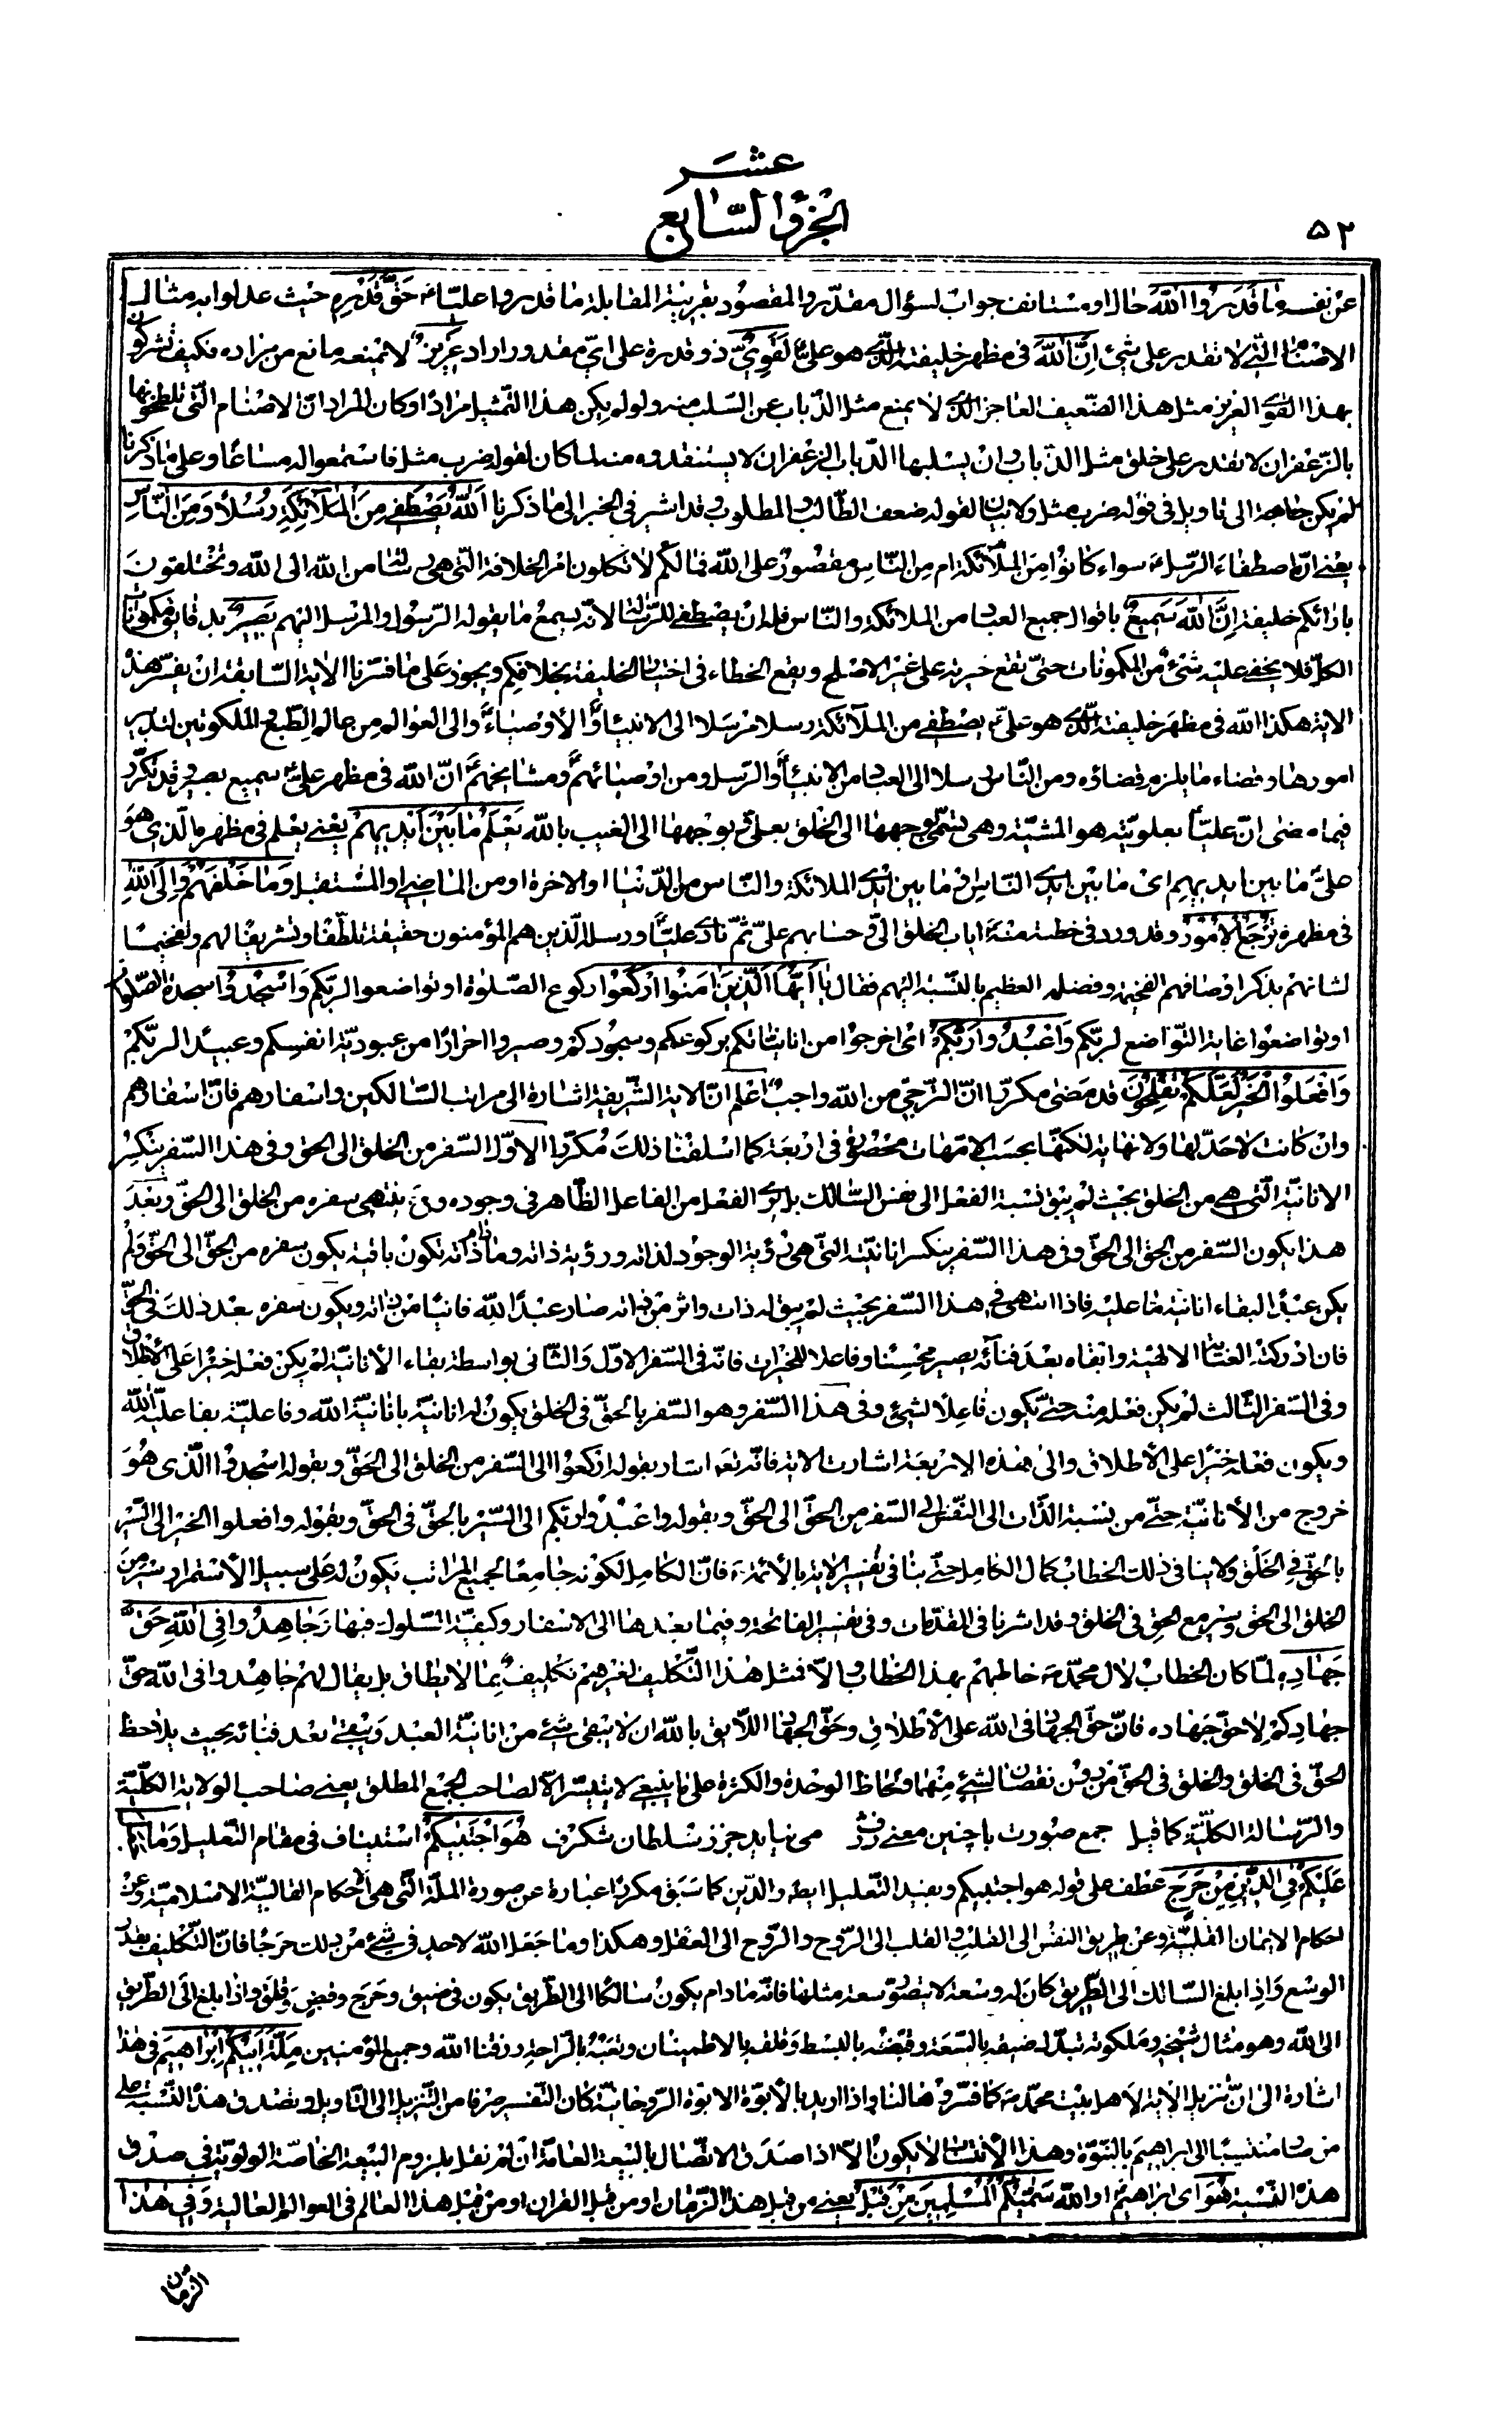 عشر
الجزؤ السّابع
٥٢
عن نفسه ما قدروا الله حال او مستانف جواب لسؤال مقدّر والمقصود بقرينة المقابلة ما قدروا عليّاً حقّ قدره حيث عدلوا به مثال
الاصنام الّتى لا تقدر على شيئ انّ الله فى مظهر خليفته الّذى هو علىّ لقوىّ ذو قدرة على اىّ مقدور اراد عزيز لا يمنعه مانع من مراده فكيف تشركون
بهذا القوى العزيز مثل هذا الضّعيف العاجز الّذى لا يمنع مثل الذّباب عن السّلب منه ولو لم يكن هذا التّمثيل مرادًا وكان المراد انّ الاصنام الّتى تلطّخونها
بالزّعفران لا تقدر على خلق مثل الذّباب وان يسلبها الذّباب الزعفران لا يستنقذوه منه لما كان لقوله ضرب مثل فاستمعوا له مساغًا وعلى ما ذكرنا
لم يكن حاجة الى تاويل فى قوله ضرب مثل ولا بيان لقوله ضعف الطّالب والمطلوب وقد اشير فى الخبر الى ما ذكرنا الله يصطفى من الملائكة رسلاً ومن النّاس
يعنى انّ اصطفاء الرّسل سواء كانوا من الملائكة ام من النّاس مقصور على الله فما لكم لا تكلون امر الخلافة الّتى هى رسالة من الله الى الله وتختلقون
بارائكم خليفة انّ الله سميع باقوال جميع العباد من الملائكة والنّاس فله ان يصطفى للرّسالة لانّه يسمع ما يقوله الرّسول والمرسل اليهم بصير بدقايق مكونات
الكلّ فلا يخفى عليه شيئ من المكمونات حتّى تقع خيرته على غير الاصلح ويقع الخطاء فى اختيار الخليفة بخلافكم ويجوز على ما فسّرنا الاية السّابقة ان يفسّر هذه
الاية هكذا الله فى مظهر خليفته الّذى هو علىّ يصطفى من الملائكة رسلا مرسلا الى الانبياء والأوصياء والى العوالم من عالم الطّبع والملكوتين لتدبير
امورها وقضاء ما يلزم قضاؤه ومن النّاس رسلا الى العباد من الانبياء والرّسل ومن اوصيائهم ومشايخهم انّ الله فى مظهر علىّ سميع بصير قد تكرّر
فيما مضى انّ عليّاً بعلويّته هو المشيّة وهى تسمّى بوجهها الى الخلق بعلىّ وبوجهها الى الغيب بالله يعلم ما بين ايديهم يعنى يعلم فى مظهره الّذى هو
علىّ ما بين ايديهم اى ما بين ايدى النّاس او ما بين ايدى الملائكة والنّاس من الدّنيا او الاخرة او من الماضى او المستقبل وما خلفهم والى الله
فى مظهره ترجع الامور وقد ورد فى خطبة منه اياب الخلق الىّ وحسابهم علىّ ثمّ نادى عليّاً ورسله الّذين هم المؤمنون حقيقة تلطّفًا وتشريفًا لهم وتفخيمًا
لشانهم بذكر اوصافهم الفخيمة وفضلهم العظيم بالنّسبة اليهم فقال يا ايّها الّذين امنوا اركعوا ركوع الصّلوة او تواضعوا لربّكم واسجدوا سجدة الصّلوة
او تواضعوا غاية التّواضع لربّكم واعبدوا ربّكم اى اخرجوا من انانيّاتكم بركوعكم وسجودكم وصيروا احرارًا من عبوديّة انفسكم وعبيدًا لربّكم
وافعلوا الخير لعلّكم تفلحون قد مضى مكرّرًا انّ التّرجّى من الله واجب اعلم انّ الاية الشّريفة اشارة الى مراتب السّالكين واسفارهم فانّ اسفارهم
وان كانت لا حدّ لها ولا نهاية لكنّها بحسب الامّهات محصورة فى اربعة كما اسلفنا ذلك مكرّرًا الاوّل السّفر من الخلق الى الحق وفى هذا السّفر ينكسر
الانانيّة الّتى هى من الخلق بحيث لم يبق نسبة الفعل الى نفس السّالك بل يرى الفعل من الفاعل الظّاهر فى وجوده وحـ ينتهى سفره من الخلق الى الحقّ وبعد
هذا يكون السّفر من الحق الى الحقّ وفى هذا السّفر ينكسر انانيّته الّتى هى رؤية الوجود لذاته ورؤية ذاته وما دام ذاته تكون باقية يكون سفره من الحقّ الى الحقّ ولم
يكن عبدًا لبقاء انانيّة ما عليه فاذا انتهى فى هذا السّفر بحيث لم يبق له ذات واثر من ذاته صار عبدًا لله فانيًا من ذاته ويكون سفره بعد ذلك فى الحقّ
فان ادركته العناية الالهيّة وابقاه بعد فنائه يصير محسنًا وفاعلا للخيرات فانّه فى السّفر الاوّل والثّانى بواسطة بقاء الأنانيّة لم يكن فعله خيرًا على الأطلاق
وفى السّفر الثّالث لم يكن فعل منه حتّى يكون فاعلاً لشيئ وفى هذا السّفر وهو السّفر بالحقّ فى الخلق يكون له انانيّة بانانيّة الله وفاعليّة بفاعليّة الله
ويكون فعله خيرًا على الأطلاق والى هذه الاربعة اشارت الاية فانّه تعـ اشار بقوله اركعوا الى السّفر من الخلق الى الحقّ وبقوله اسجدوا الّذى هو
خروج من الأنانيّة حتّى من نسبة الذّات الى النّفس الى السّفر من الحقّ الى الحقّ وبقوله واعبدوا ربّكم الى السّير بالحقّ فى الحقّ وبقوله وافعلوا الخير الى السّير
بالحقّ فى الخلق ولا ينافى ذلك الخطاب كمال الكامل حتّى ينافى تفسير الاية بالأئمّة فانّ الكامل لكونه جامعًا لجميع المراتب يكون له على سبيل الأستمرار سير من
الخلق الى الحق وسير مع الحق فى الخلق وقد اشرنا فى المقدّمات وفى تفسير الفاتحة وفيما بعدها الى الاسفار وكيفيّة السّلوك فيها وجاهدوا فى الله حقّ
جهاده لمّا كان الخطاب لال محمّد خاطبهم بهذا الخطاب والاّ فمثل هذا التّكليف لغيرهم تكليف بما لا يطاق بل يقال لهم جاهدوا فى الله حقّ
جهادكم لا حقّ جهاده فانّ حقّ الجهاد فى الله على الأطلاق وحقّ الجهاد اللاّيق بالله ان لا يبقى شيئ من انانيّة العبد ويبقى بعد فنائه بحيث يلاحظ
الحقّ فى الخلق والخلق فى الحقّ من دون نقصان لشيئ منهما ولحاظ الوحدة والكثرة على ما ينبغى لا يتيسّر الاّ لصاحب الجمع المطلق يعنى صاحب الولاية الكلّيّة
والرّسالة الكلّيّة كما قيل جمع صورت با چنين معنى ژرف مى نيايد جز ز سلطان شگرف هو اجتبيكم استيناف فى مقام التّعليل وما جعل
عليكم فى الدّين من حرج عطف على قوله هو اجتبيكم ويفيد التّعليل ايضًا والدّين كما سبق مكررًا عبارة عن صورة الملّة الّتى هى احكام القالبيّة الاسلاميّة وعن
احكام الايمان القلبيّة وعن طريق النفس الى القلب والقلب الى الرّوح والرّوح الى العقل وهكذا وما جعل الله لاحد فى شيئ من ذلك حرجًا فانّ التّكليف بقدر
الوسع واذا بلغ السّالك الى الطّريق كان له وسعة لا يتصوّر سعة مثلها فانّه ما دام يكون سالكًا الى الطّريق يكون فى ضيق وحرج وقبض وقلق واذا بلغ الى الطّريق
الى الله وهو مثال شيخه وملكوته تبدّل ضيقه بالسّعة وقبضه بالبسط وقلقه بالاطمينان وتعبه بالرّاحة رزقنا الله وجميع المؤمنين ملّة ابيكم ابراهيم فى هذا
اشارة الى انّ تنزيل الاية لاهل بيت محمّد كما فسّروها لنا واذا اريد بالأبوّة الابوّة الرّوحانيّة كان التّفسير صرفا من التّنزيل الى التّاويل وتصدق هذه النّسبة على
من صار منتسبًا الى ابراهيم بالبنوّة وهذا الأنتساب لا يكون الاّ اذا صدق الاتّصال بالبيعة العامّة ان لم نقل بلزوم البيعة الخاصّة الولويّة فى صدق
هذه النّسبة هو اى ابراهيم او الله سمّيكم المسلمين من قبل يعنى من قبل هذا الزّمان او من قبل القران او من قبل هذا العالم فى العوالم العالية وفى هذا
الزمان